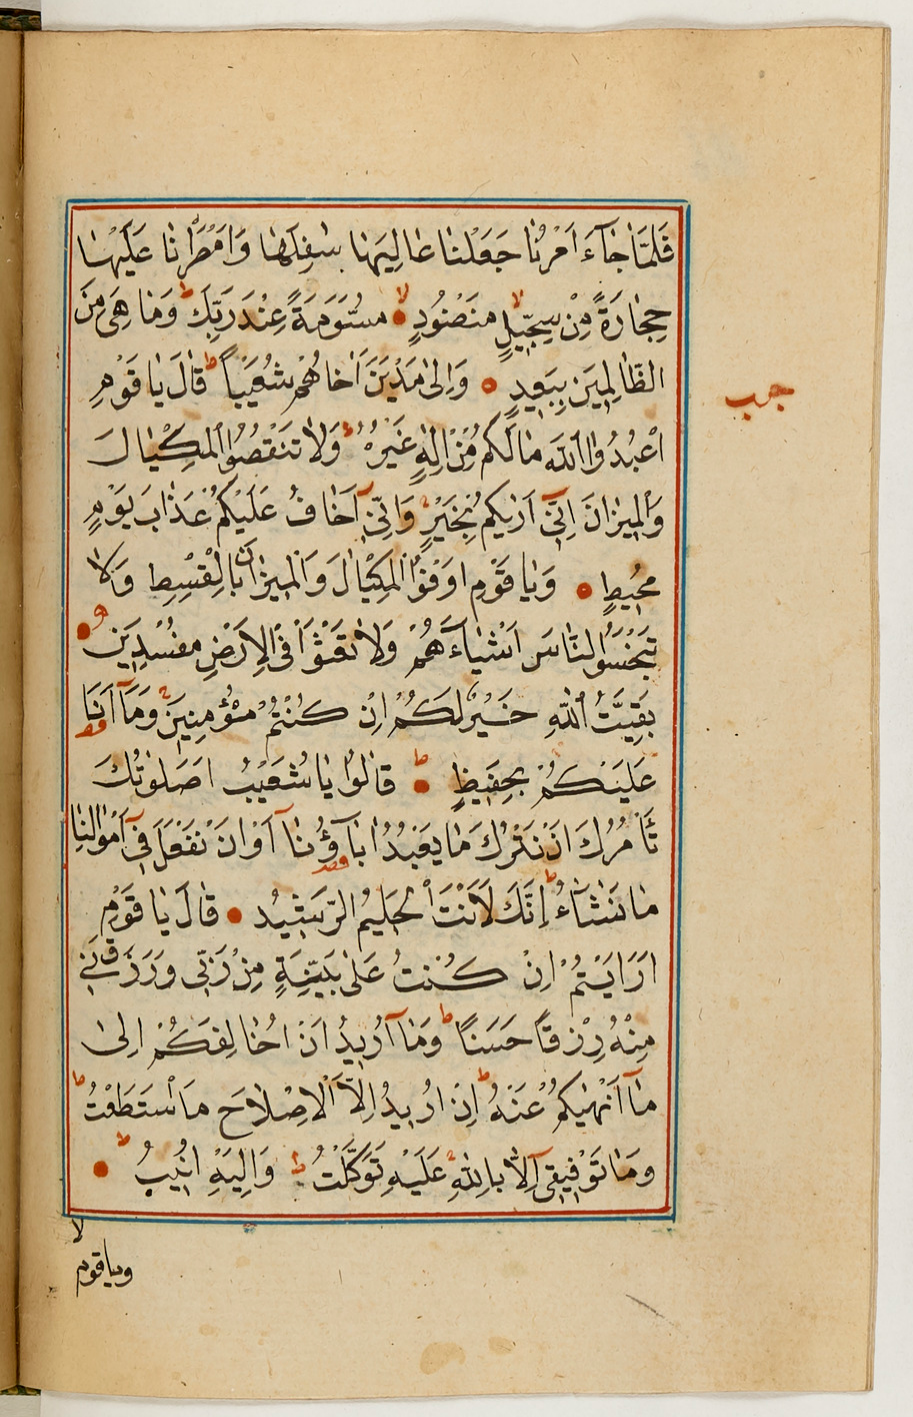 فَلَمَّا جَآءَ اَمْرُنَا جَعَلْنَا عَالِيَهَا سَافِلَهَا وَاَمْطَرْنَا عَلَيْهَا
حِجَارَةً مِنْ سِجّٖيلٍ مَنْضُودٍ مُسَوَّمَةً عِنْدَ رَبِّكَ وَمَا هِىَ مِنَ
الظَّالِمٖينَ بِبَعٖيدٍ وَاِلٰى مَدْيَنَ اَخَاهُمْ شُعَيْبًا قَالَ يَا قَوْمِ
جب
اعْبُدُوا اللّٰهَ مَا لَكُمْ مِنْ اِلٰهٍ غَيْرُهُ وَلَا تَنْقُصُوا الْمِكْيَالَ
وَالْمٖيزَانَ اِنّٖى اَرٰيكُمْ بِخَيْرٍ وَاِنّٖى اَخَافُ عَلَيْكُمْ عَذَابَ يَوْمٍ
مُحٖيطٍ وَيَا قَوْمِ اَوْفُوا الْمِكْيَالَ وَالْمٖيزَانَ بِالْقِسْطِ وَلَا
تَبْخَسُوا النَّاسَ اَشْيَآءَهُمْ وَلَا تَعْثَوْا فِى الْاَرْضِ مُفْسِدٖينَ
بَقِيَّتُ اللّٰهِ خَيْرٌ لَكُمْ اِنْ كُنْتُمْ مُؤْمِنٖينَ وَمَآ اَنَا
عَلَيْكُمْ بِحَفٖيظٍ قَالُوا يَا شُعَيْبُ اَصَلٰوتُكَ
تَأْمُرُكَ اَنْ نَتْرُكَ مَا يَعْبُدُ اٰبَآؤُنَآ اَوْ اَنْ نَفْعَلَ فٖٓى اَمْوَالِنَا
مَا نَشَآءُ اِنَّكَ لَاَنْتَ الْحَلٖيمُ الرَّشٖيدُ قَالَ يَا قَوْمِ
اَرَاَيْتُمْ اِنْ كُنْتُ عَلٰى بَيِّنَةٍ مِنْ رَبّٖى وَرَزَقَنٖى
مِنْهُ رِزْقًا حَسَنًا وَمَآ اُرٖيدُ اَنْ اُخَالِفَكُمْ اِلٰى
مَآ اَنْهٰيكُمْ عَنْهُ اِنْ اُرٖيدُ اِلَّا الْاِصْلَاحَ مَا اسْتَطَعْتُ
وَمَا تَوْفٖيقٖٓى اِلَّا بِاللّٰهِ عَلَيْهِ تَوَكَّلْتُ وَاِلَيْهِ اُنٖيبُ
ويا قوم